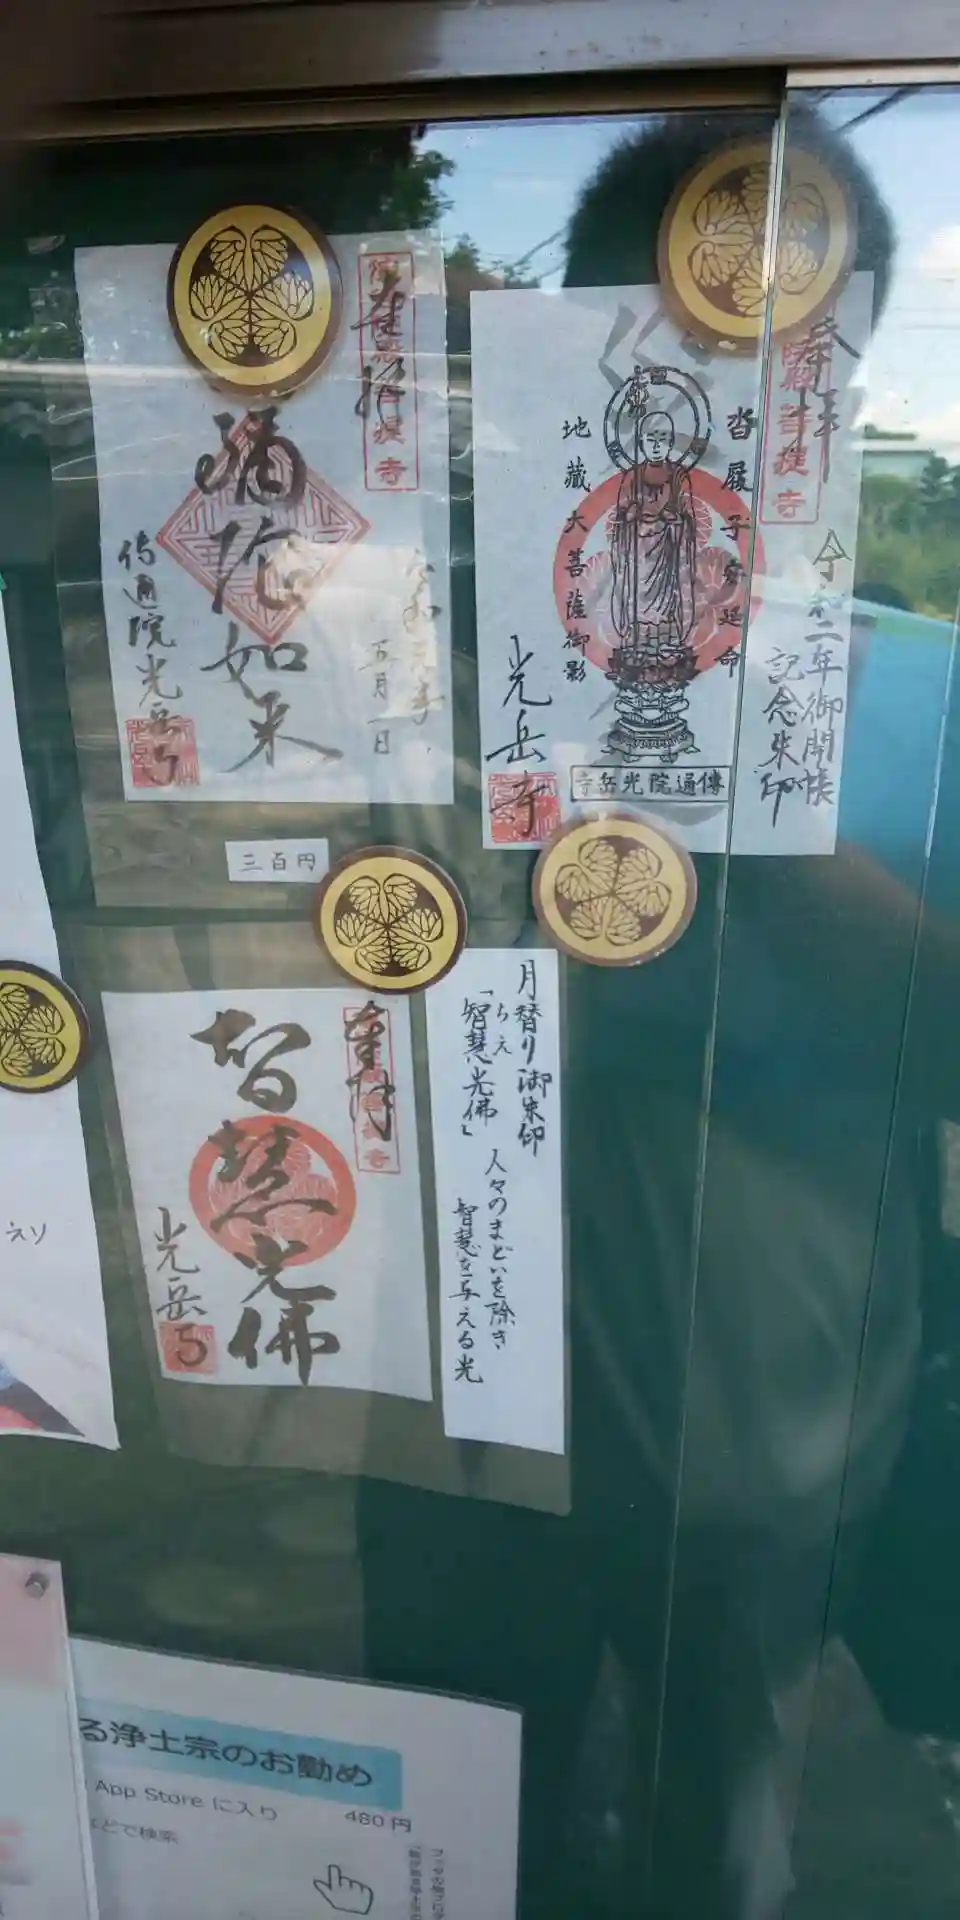 奉拝
彌陀如来
五月一日
傳通院光岳寺
三百円
奉拝
院殿菩提寺
令和二年御開帳
記念朱印
沓履子安延命
地藏大菩薩御影
傳通院光岳寺
光岳寺
奉拝
智慧光佛
光岳寺
月替り御朱印
「智慧光佛」
ちえ
人々のまどいを除き
智慧を与える光
る浄土宗のお勤め
App Store に入り
480円
などで検索